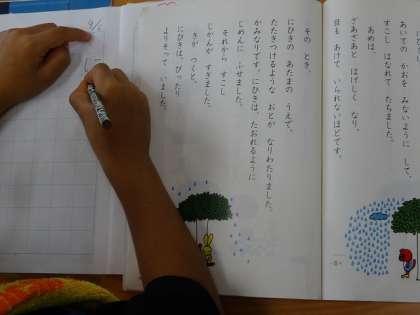 あいての かおを みないように して、
すこし はなれて たちました。
あめは
ざあざあと はげしく なり、
目も あけて いられないほどです。
その とき、
にひきの あたまの うえで、
たたきつけるような おとが なりわたりました。
かみなりです。にひきは、たおれるように
じめんに ふせました。
それから すこし
じかんが すぎました。
きが つくと、
にひきは、ぴったり
よりそって いました。